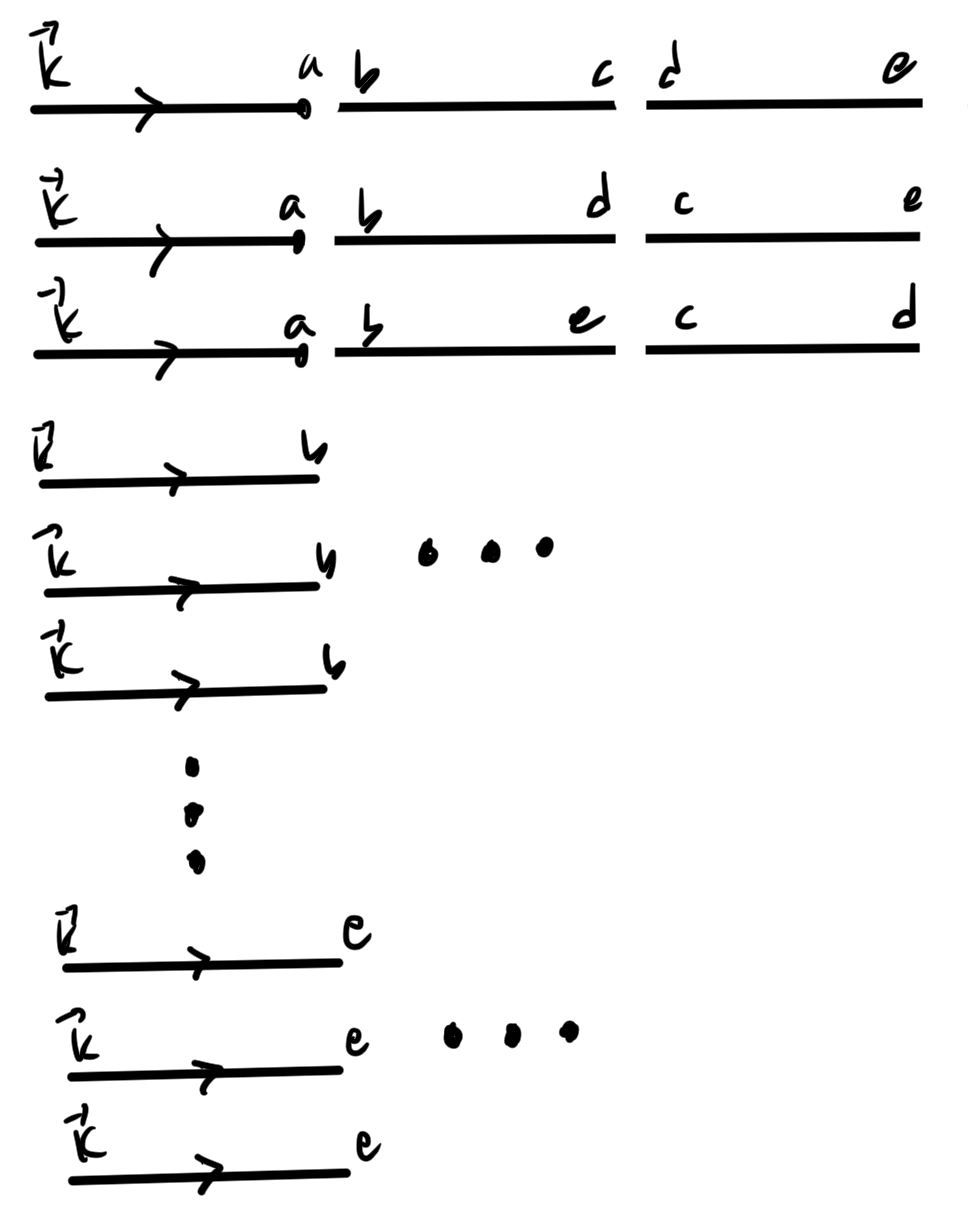 k⃗ a b c d e
k⃗ a b d c e
k⃗ a b e c d
k⃗ b
k⃗ b
k⃗ b
k⃗ e
k⃗ e
k⃗ e